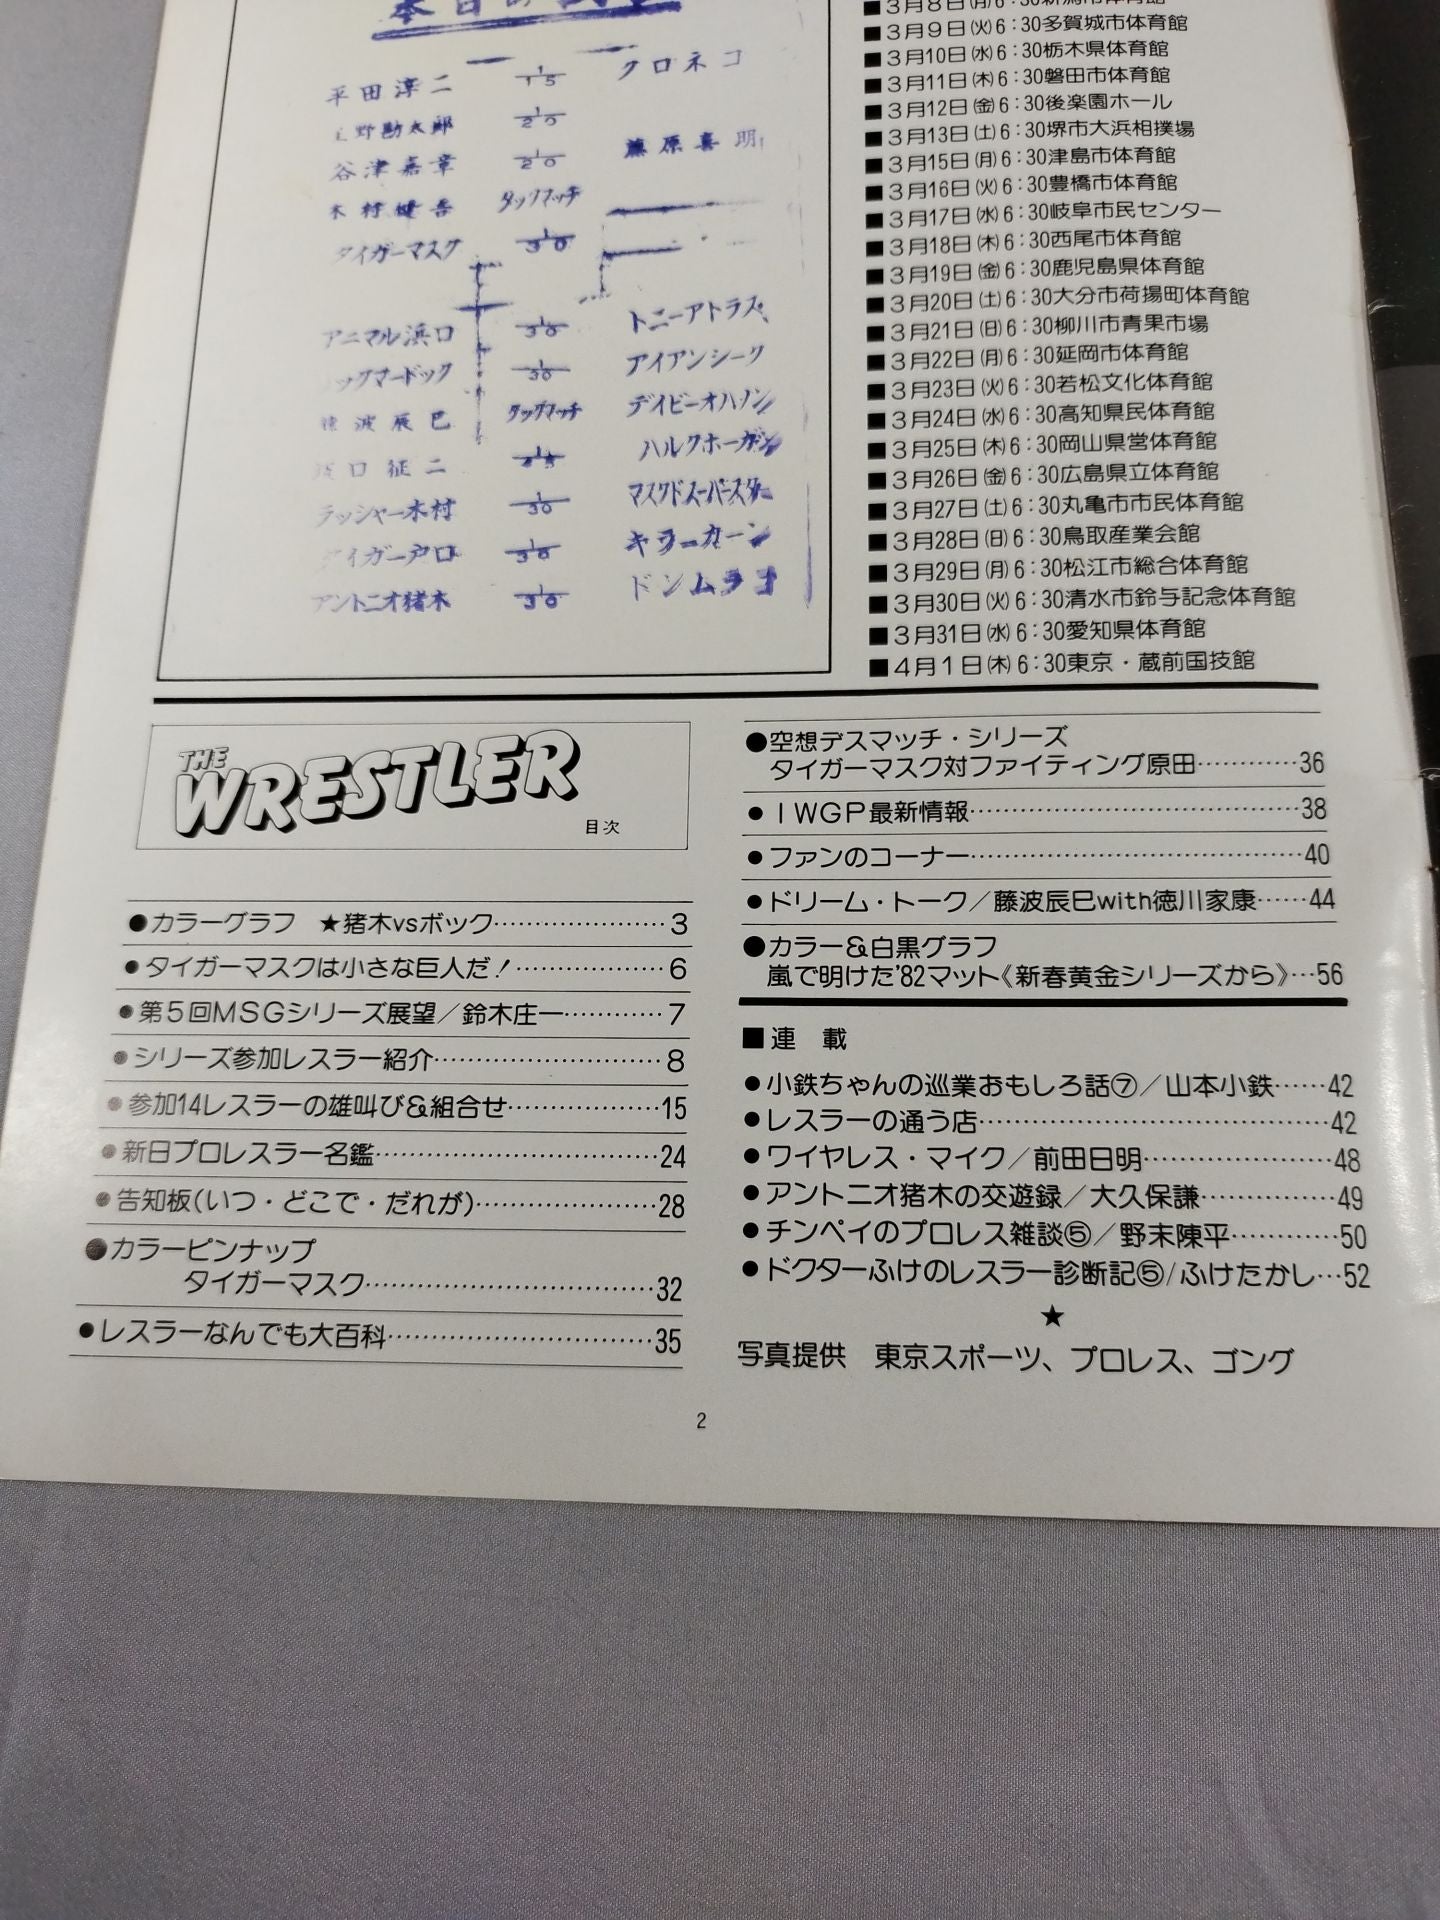 平田淳二 1/15 クロネコ
野勘太郎 1/20
谷津嘉章 1/20 藤原喜明
木村健吾 タッグマッチ
タイガーマスク 1/30
アニマル浜口 1/30 トニーアトラス
ックマードック 1/30 アイアンシーク
波辰巳 タッグマッチ デイビーオハノン
口征二 1/45 ハルクホーガン
ラッシャー木村 1/30 マスクドスーパースター
タイガー戸口 1/30 キラーカーン
アントニオ猪木 1/30 ドンムラコ
■3月8日(月)6:30新潟市体育館
■3月9日(火)6:30多賀城市体育館
■3月10日(水)6:30栃木県体育館
■3月11日(木)6:30磐田市体育館
■3月12日(金)6:30後楽園ホール
■3月13日(土)6:30堺市大浜相撲場
■3月15日(月)6:30津島市体育館
■3月16日(火)6:30豊橋市体育館
■3月17日(水)6:30岐阜市民センター
■3月18日(木)6:30西尾市体育館
■3月19日(金)6:30鹿児島県体育館
■3月20日(土)6:30大分市荷揚町体育館
■3月21日(日)6:30柳川市青果市場
■3月22日(月)6:30延岡市体育館
■3月23日(火)6:30若松文化体育館
■3月24日(水)6:30高知県民体育館
■3月25日(木)6:30岡山県営体育館
■3月26日(金)6:30広島県立体育館
■3月27日(土)6:30丸亀市市民体育館
■3月28日(日)6:30鳥取産業会館
■3月29日(月)6:30松江市総合体育館
■3月30日(火)6:30清水市鈴与記念体育館
■3月31日(水)6:30愛知県体育館
■4月1日(木)6:30東京・蔵前国技館
THE
WRESTLER
目次
●カラーグラフ ★猪木vsボック…………………3
●タイガーマスクは小さな巨人だ!………………6
●第5回MSGシリーズ展望／鈴木庄一…………7
●シリーズ参加レスラー紹介………………………8
●参加14レスラーの雄叫び&組合せ………………15
●新日プロレスラー名鑑……………………………24
●告知板(いつ・どこで・だれが)…………………28
●カラーピンナップ
タイガーマスク……………………………32
●レスラーなんでも大百科…………………………35
●空想デスマッチ・シリーズ
タイガーマスク対ファイティング原田…………36
●IWGP最新情報…………………………………38
●ファンのコーナー…………………………………40
●ドリーム・トーク／藤波辰巳with徳川家康……44
●カラー&白黒グラフ
嵐で明けた'82マット《新春黄金シリーズから》…56
■連 載
●小鉄ちゃんの巡業おもしろ話⑦／山本小鉄……42
●レスラーの通う店…………………………………42
●ワイヤレス・マイク／前田日明…………………48
●アントニオ猪木の交遊録／大久保謙……………49
●チンペイのプロレス雑談⑤／野末陳平…………50
●ドクターふけのレスラー診断記⑤/ふけたかし…52
★
写真提供 東京スポーツ、プロレス、ゴング
2